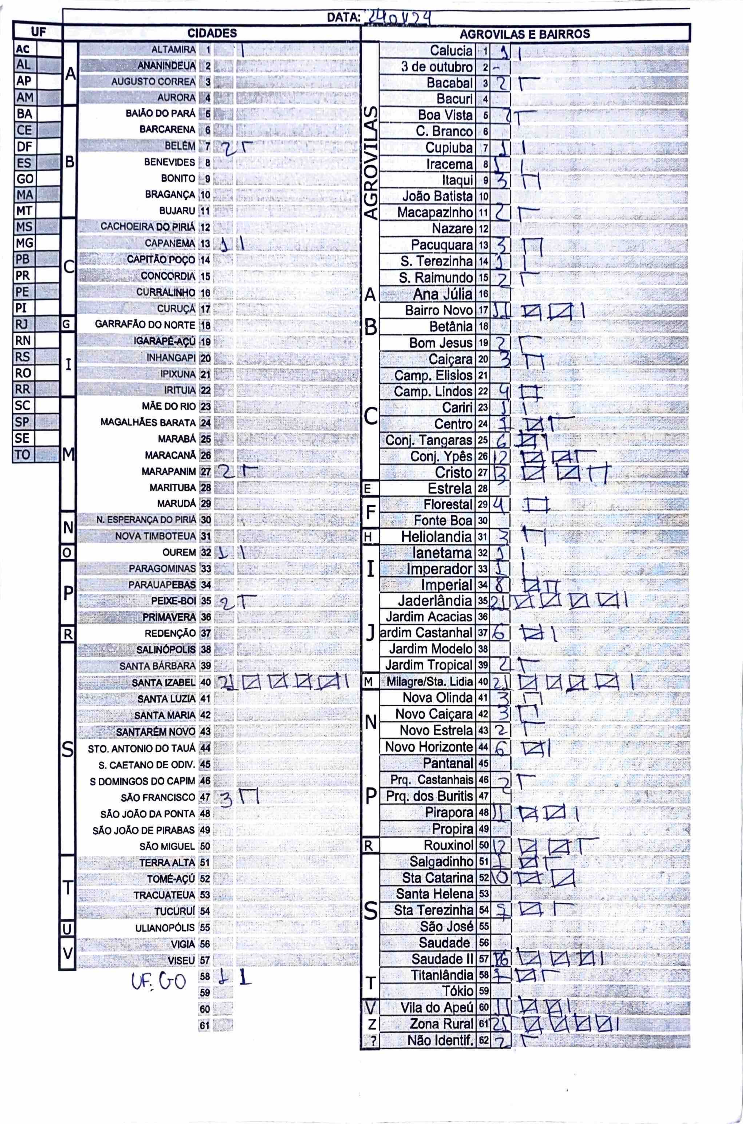 DATA: 240424
UF
CIDADES
AC
AL
AP
AM
BA
CE
DF
ES
GO
MA
MT
MS
MG
PB
PR
PE
PI
RJ
RN
RS
RO
RR
SC
SP
SE
TO
A
ALTAMIRA 1 1
ANANINDEUA 2
AUGUSTO CORREA 3
AURORA 4
B
BAIÃO DO PARÁ 5
BARCARENA 6
BELÉM 7 2
BENEVIDES 8
BONITO 9
BRAGANÇA 10
BUJARU 11
C
CACHOEIRA DO PIRIÁ 12
CAPANEMA 13 1 1
CAPITÃO POÇO 14
CONCORDIA 15
CURRALINHO 16
CURUÇA 17
G
GARRAFÃO DO NORTE 18
I
IGARAPÉ-AÇÚ 19
INHANGAPI 20
IPIXUNA 21
IRITUIA 22
M
MÃE DO RIO 23
MAGALHÃES BARATA 24
MARABÁ 25
MARACANÃ 26
MARAPANIM 27 2
MARITUBA 28
MARUDÁ 29
N
N. ESPERANÇA DO PIRIÁ 30
NOVA TIMBOTEUA 31
O
OUREM 32 1 1
P
PARAGOMINAS 33
PARAUAPEBAS 34
PEIXE-BOI 35 2
PRIMAVERA 36
R
REDENÇÃO 37
S
SALINÓPOLIS 38
SANTA BÁRBARA 39
SANTA IZABEL 40 21
SANTA LUZIA 41
SANTA MARIA 42
SANTARÉM NOVO 43
STO. ANTONIO DO TAUÁ 44
S. CAETANO DE ODIV. 45
S DOMINGOS DO CAPIM 46
SÃO FRANCISCO 47 3
SÃO JOÃO DA PONTA 48
SÃO JOÃO DE PIRABAS 49
SÃO MIGUEL 50
T
TERRA ALTA 51
TOMÉ-AÇÚ 52
TRACUATEUA 53
TUCURUÍ 54
U
ULIANOPÓLIS 55
V
VIGIA 56
VISEU 57
UF: GO 58 1 1
59
60
61
AGROVILAS E BAIRROS
AGROVILAS
Calucia 1 1 1
3 de outubro 2 -
Bacabal 3 2
Bacuri 4
Boa Vista 5 2
C. Branco 6
Cupiuba 7 1 1
Iracema 8 1 1
Itaqui 9 3
João Batista 10
Macapazinho 11 2
Nazare 12
Pacuquara 13 3
S. Terezinha 14 1 1
S. Raimundo 15 2
A
Ana Júlia 16
B
Bairro Novo 17 11
Betânia 18
Bom Jesus 19 2
C
Caiçara 20 3
Camp. Elisios 21
Camp. Lindos 22 4
Cariri 23 1 1
Centro 24 7
Conj. Tangaras 25 6
Conj. Ypês 26 12
Cristo 27 13
E
Estrela 28
F
Florestal 29 4
Fonte Boa 30
H
Heliolandia 31 3
I
Ianetama 32 1 1
Imperador 33 1 1
Imperial 34 8
J
Jaderlândia 35 21
Jardim Acacias 36
Jardim Castanhal 37 6
Jardim Modelo 38
Jardim Tropical 39 2
M
Milagre/Sta. Lidia 40 21
N
Nova Olinda 41 3
Novo Caiçara 42 3
Novo Estrela 43 2
Novo Horizonte 44 6
P
Pantanal 45
Prq. Castanhais 46 2
Prq. dos Buritis 47
Pirapora 48 11
Propira 49
R
Rouxinol 50 12
S
Salgadinho 51
Sta Catarina 52 10
Santa Helena 53
Sta Terezinha 54 7
São José 55
Saudade 56
Saudade II 57 16
T
Titanlândia 58 7
Tókio 59
V
Vila do Apeú 60 11
Z
Zona Rural 61 21
?
Não Identif. 62 2